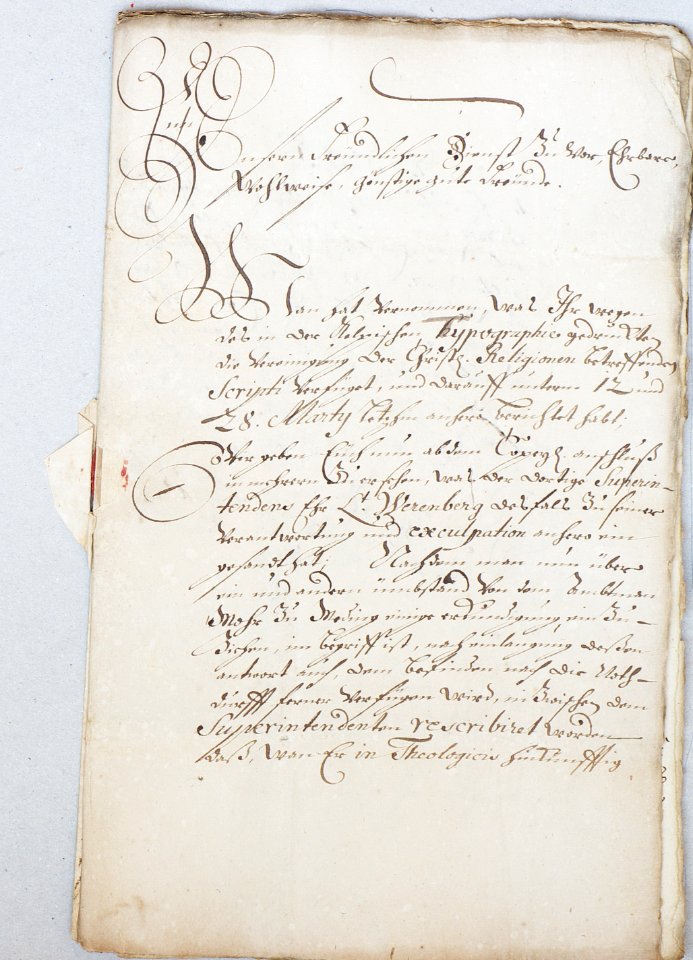 Unsern Freündlichen Dienst zu vor, Ehrbare,
Wohlweise, günstige gute Freünde.
Man hat vernommen, was Ihr wegen
des in der Stelpischen Typographie gedruckten
die Vereinigung der Christl. Religionen betreffenden
Scripti verfüget, und darauff unterm 12 und
28. Marty letzhin anhero berichtet habt;
Wir geben Euch nun ab dem Copeyl. anschluß
mehrern zu ersehen, was der dortige Superin-
tendens Ehr Lt. Werenberg desfals zu seiner
verantwortung und exculpation anhero ein
gesandt hat; Nachdem man nun über
ein und andern ümbstand von dem Ambtman
Mohr zu Meding einige erkundigung ein zu-
ziehen, im begriff ist, nach einlangung deßen
antwort auch, dem befinden nach die Noth-
durfft ferner verfügen wird, inzwischen dem
Superintendenten rescribiret worden
daß, wan Er in Theologicis hinkünfftig